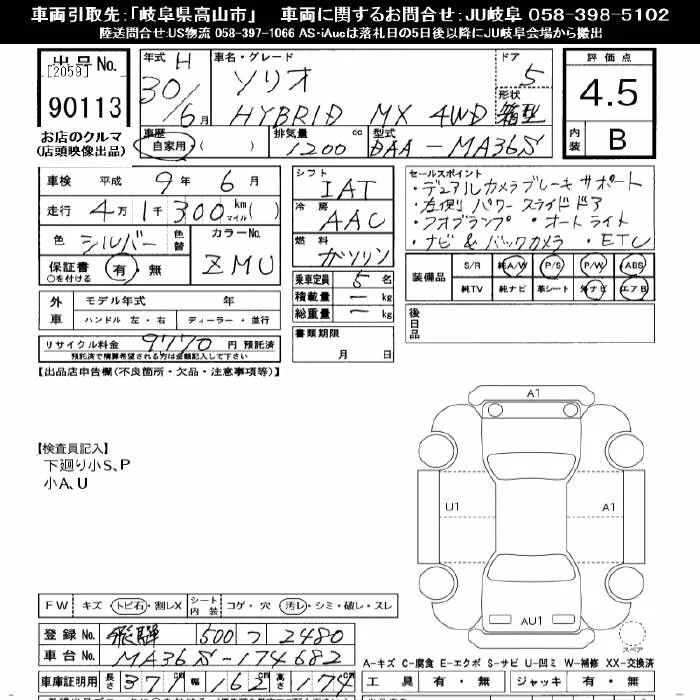 車両引取先:「岐阜県高山市」 車両に関するお問合せ:JU岐阜 058-398-5102
陸送問合せ:US物流 058-397-1066 AS・iAucは落札日の5日後以降にJU岐阜会場から搬出
出品No.
[2059]
90113
お店のクルマ
(店頭映像出品)
年式 H 30/6月
車名・グレード
ソリオ
HYBRID MX 4WD
ドア 5
形状 箱型
評価点
4.5
内装 B
車歴 自家用・( )
排気量 1200 cc
型式 DAA-MA36S
車検 平成 9年 6月
走行 4万 1千 300 km マイル( )
色 シルバー 色替
カラーNo. ZMU
保証書 有・無
○を付ける
シフト IAT
冷房 AAC
燃料 ガソリン
乗車定員 5 名
積載量 ー kg
総重量 ー kg
書類期限
月 日
セールスポイント
・デュアルカメラブレーキサポート
・左側パワースライドドア
・フォグランプ ・オートライト
・ナビ&バックカメラ ・ETC
装備品 S/R 純A/W P/S P/W ABS
純TV 純ナビ 革シート 外ナビ エアB
後日品
外車 モデル年式 年
ハンドル 左・右 ディーラー・並行
リサイクル料金 9770 円 預託済
預託済で精算希望される方は金額記入して下さい
【出品店申告欄(不良箇所・欠品・注意事項等)】
【検査員記入】
下廻り小S、P
小A、U
A1
U1
A1
AU1
スペア
FW キズ・トビ石・割レX シート内装 コゲ・穴 汚レ・シミ・破レ・スレ
登録No. 飛騨 500 つ 2480
車台No. MA36S-174682
A-キズ C-腐食 E-エクボ S-サビ U-凹ミ W-補修 XX-交換済
車庫証明用 長さ 371 幅 163 高さ 174
工具 有・無 ジャッキ 有・無